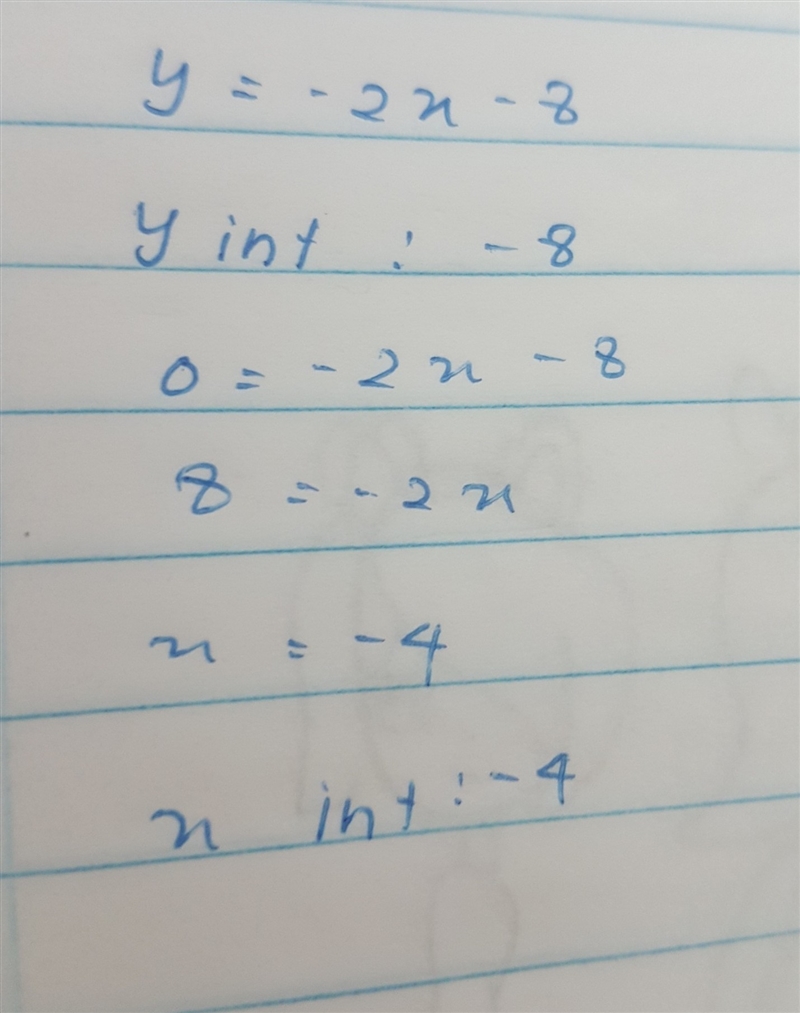 y = -2x - 8
y int : -8
0 = -2x - 8
8 = -2x
x = -4
x int : -4